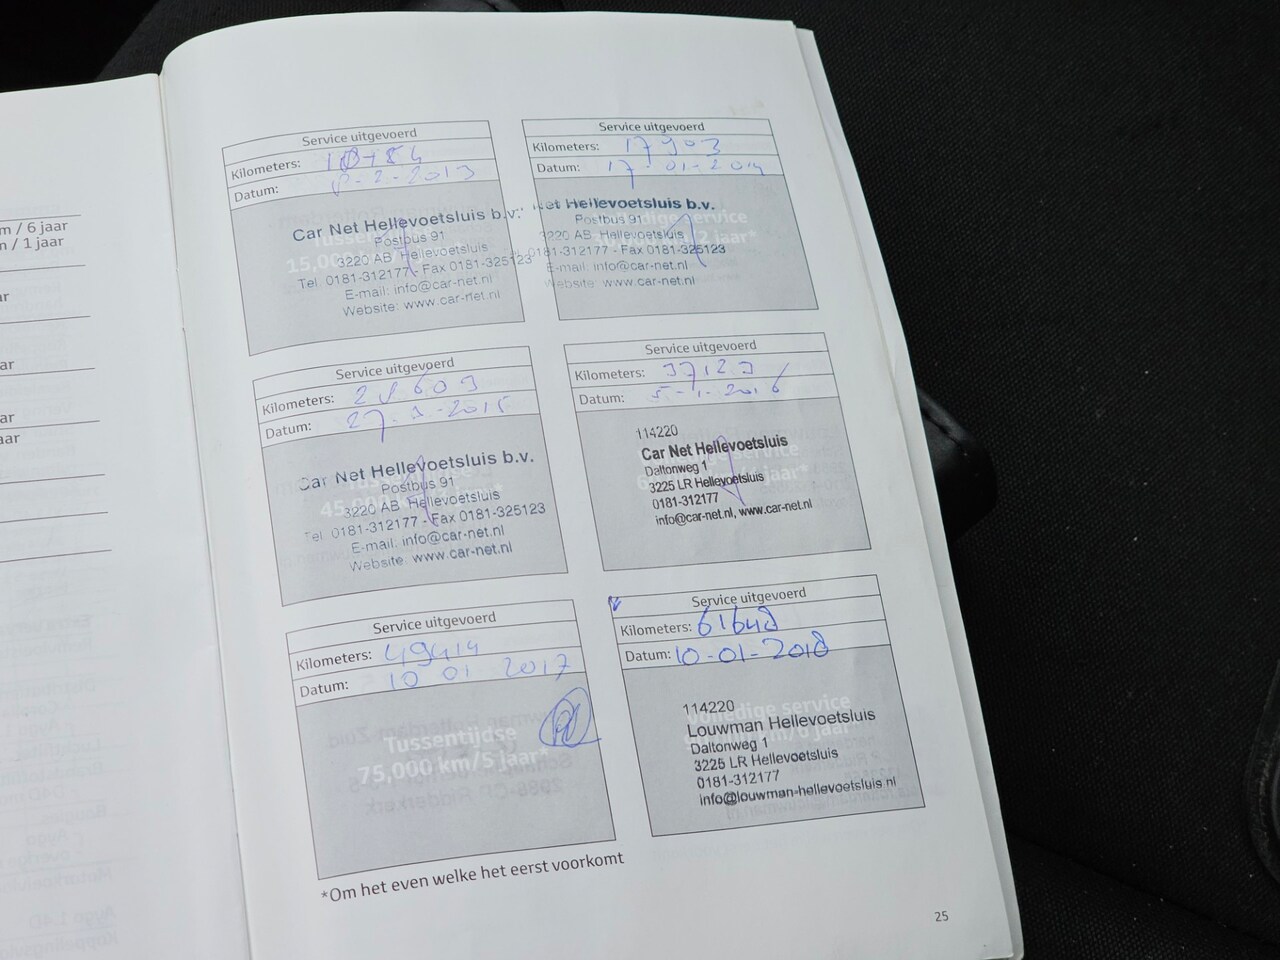 m / 6 jaar
m / 1 jaar
ar
Service uitgevoerd
Kilometers:
Datum: 8-2-2013
Car Net Hellevoetsluis b.v.
Postbus 91
3220 AB Hellevoetsluis
Tel. 0181-312177 - Fax 0181-325123
E-mail: info@car-net.nl
Website: www.car-net.nl
Service uitgevoerd
Kilometers: 17903
Datum: 17-01-2014
Net Hellevoetsluis b.v.
Postbus 91
3220 AB Hellevoetsluis
0181-312177 - Fax 0181-325123
E-mail: info@car-net.nl
Website: www.car-net.nl
Service uitgevoerd
Kilometers: 28609
Datum: 27-3-2015
Car Net Hellevoetsluis b.v.
Postbus 91
3220 AB Hellevoetsluis
Tel. 0181-312177 - Fax 0181-325123
E-mail: info@car-net.nl
Website: www.car-net.nl
Service uitgevoerd
Kilometers: 37123
Datum: 5-1-2016
114220
Car Net Hellevoetsluis
Daltonweg 1
3225 LR Hellevoetsluis
0181-312177
info@car-net.nl, www.car-net.nl
Service uitgevoerd
Kilometers: 49414
Datum: 10 01 2017
Tussentijdse
75,000 km/5 jaar*
Service uitgevoerd
Kilometers: 61648
Datum: 10-01-2018
Volledige service
114220
Louwman Hellevoetsluis
Daltonweg 1
3225 LR Hellevoetsluis
0181-312177
info@louwman-hellevoetsluis.nl
*Om het even welke het eerst voorkomt
25